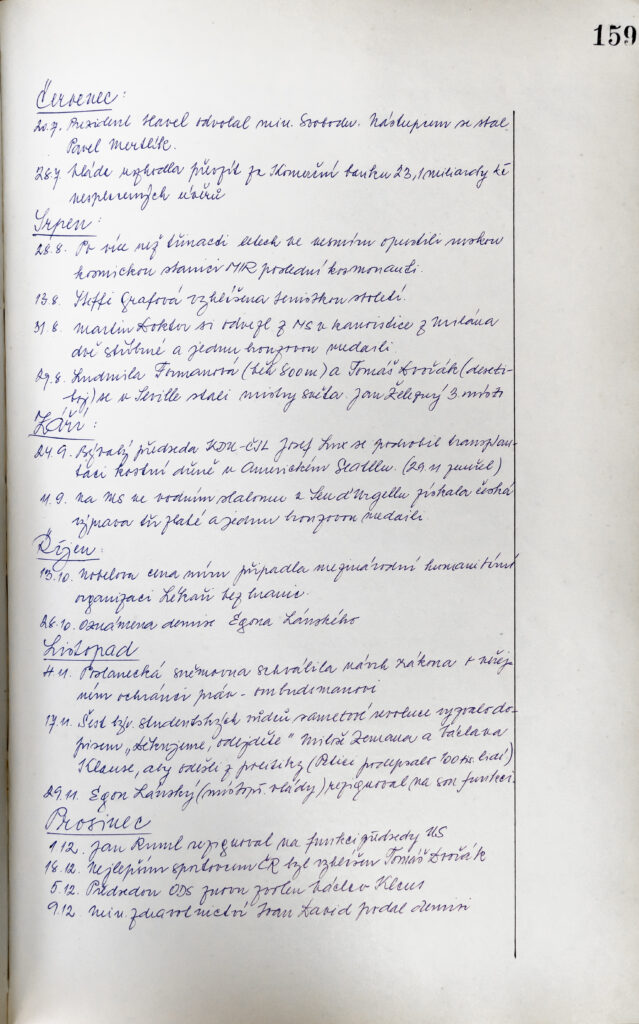 159
Červenec:
20.7. Prezident Havel odvolal min. Svobodu. Nástupcem se stal
Pavel Mertlík.
28.7 Vláda rozhodla převzít za Komerční banku 23,1 miliardy kč
nesplacených úvěrů
Srpen:
28.8. Po více než třinácti letech ve vesmíru opustili ruskou
kosmickou stanici MIR poslední kosmonauti.
13.8. Steffi Grafová vyhlášena tenistkou století.
31.8. Martin Doktor si odvezl z MS v kanoistice z Milána
dvě stříbrné a jednu bronzovou medaili.
29.8. Ludmila Formanová (běh 800m) a Tomáš Dvořák (deseti-
boj) se v Seville stali mistry světa. Jan Železný 3. místo
Září:
24.9. Bývalý předseda KDU-ČSL Josef Lux se podrobil transplan-
taci kostní dřeně v Americkém Seattlu. (29.11 zemřel)
11.9. Na MS ve vodním slalomu v Seu d'Urgellu získala česká
výprava tři zlaté a jednu bronzovou medaili.
Říjen:
15.10. Nobelova cena míru připadla mezinárodní humanitární
organizaci Lékaři bez hranic.
28.10. Oznámena demise Egona Lánského
Listopad
4.11. Poslanecká sněmovna schválila návrh zákona o veřej-
ném ochránci práv - ombudsmanovi
17.11. Šest býv. studentských vůdců sametové revoluce vyzvalo do-
pisem "Děkujeme, odejděte" Miloše Zemana a Václava
Klause, aby odešli z politiky (Petici podepsalo 100 tis. lidí)
29.11. Egon Lánský (místopř. vlády) rezignoval na svou funkci.
Prosinec
1.12. Jan Ruml rezignoval na funkci předsedy US
18.12. Nejlepším sportovcem ČR byl vyhlášen Tomáš Dvořák
5.12. Předsedou ODS znovu zvolen Václav Klaus
9.12. Min. zdravotnictví Ivan David podal demisi